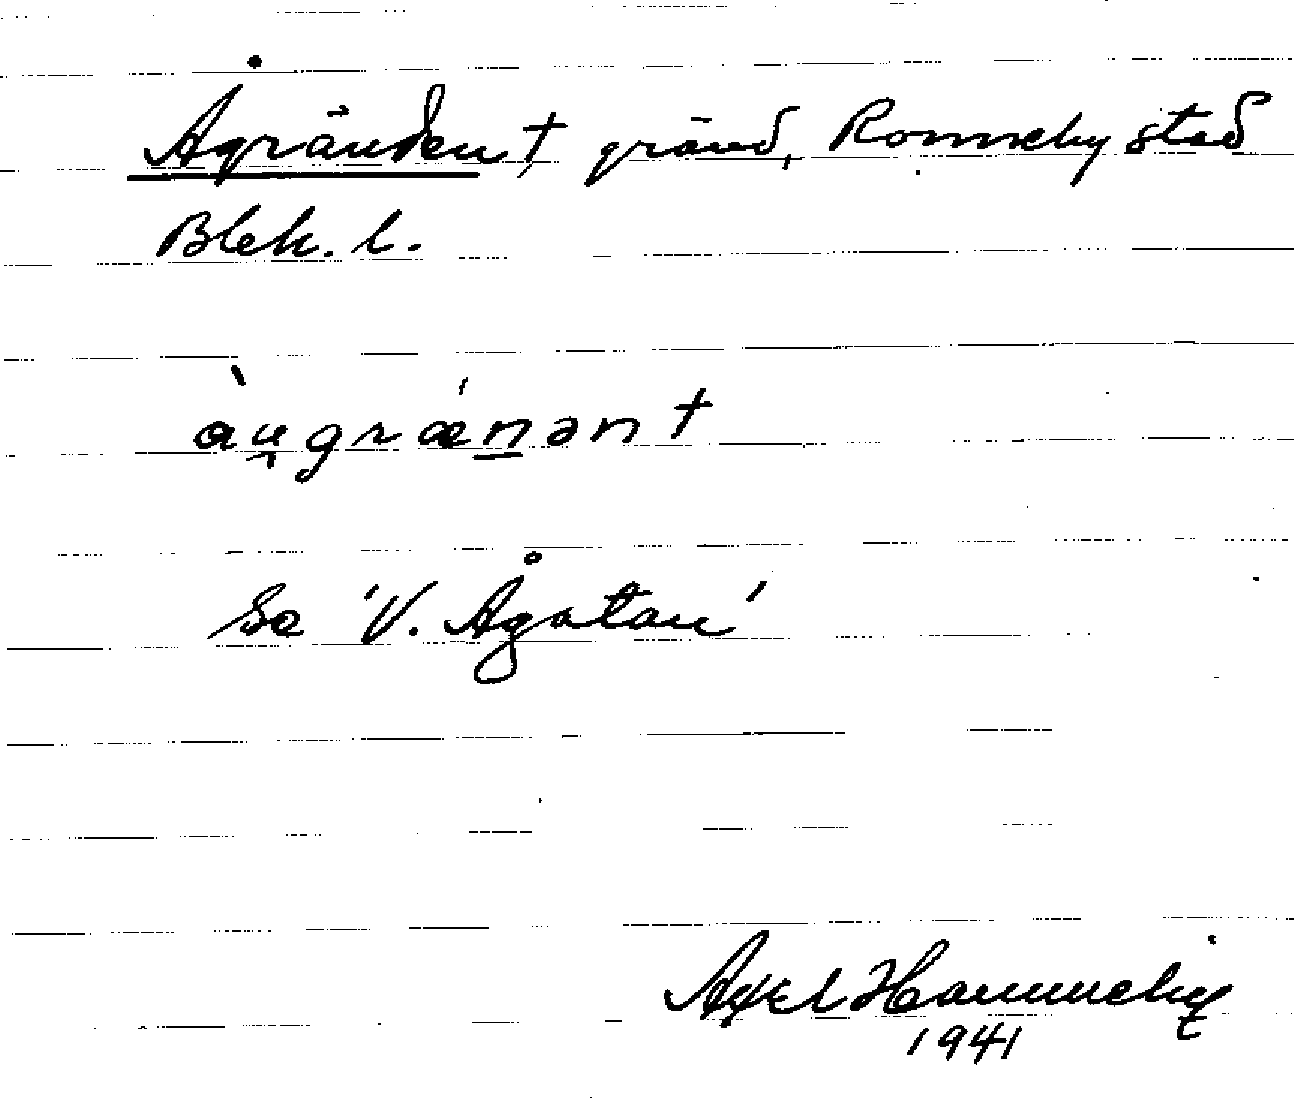 Ågränden † gränd, Ronneby stad
Blek. l.
àu̯grǽnənt †
Se 'V. Ågatan'
Axel Hamneby
1941